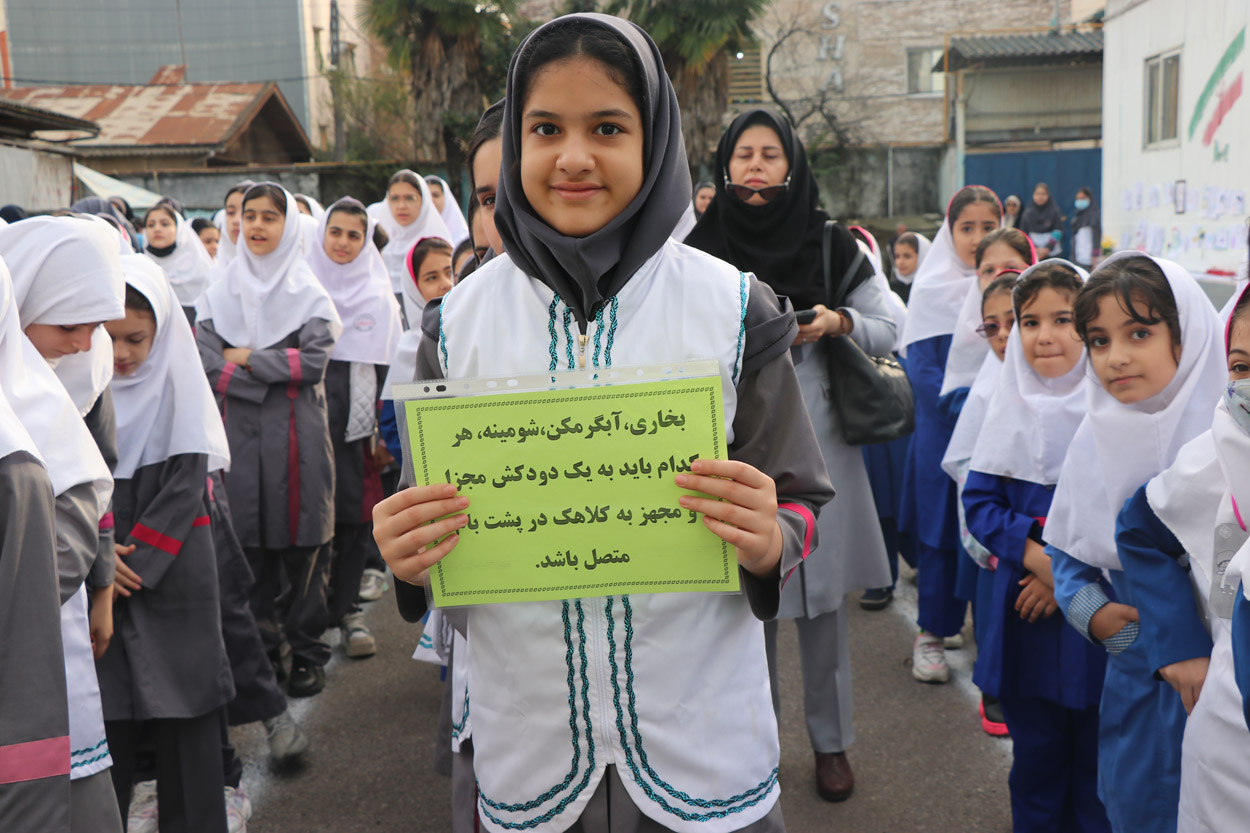 بخاری، آبگرمکن،شومینه، هر
کدام باید به یک دودکش مجزا
مجهز به کلاهک در پشت
متصل باشد.
SHA